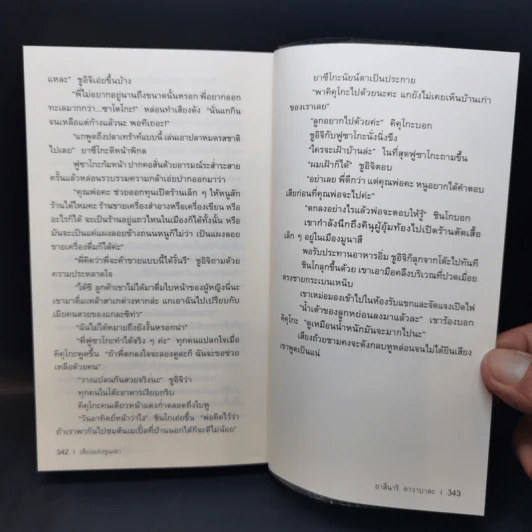 แหละ" ชูอิจิเอ่ยขึ้นบ้าง
"พี่ไม่อยากอยู่นานถึงขนาดนั้นหรอก พี่อยากออก
ทะเลมากกว่า...ซาโตโกะ! หล่อนทำเสียงดัง "นั่นแกกิน
จนเหลือแต่ก้างแล้วนะ พอทีเถอะ!"
"แกพูดถึงปลาเทร้าท์แบบนี้ เล่นเอาปลาหมดรสชาติ
ไปเลย" ยาซึโกะตีหน้าพิกล
ฟูซาโกะก้มหน้า ปากคอสั่นด้วยอารมณ์ระส่ำระสาย
ครั้นแล้วหล่อนรวบรวมความกล้าเอ่ยปากออกมาว่า
"คุณพ่อคะ ช่วยออกทุนเปิดร้านเล็ก ๆ ให้หนูสัก
ร้านได้ไหมคะ ร้านขายเครื่องสำอางหรือเครื่องเขียน หรือ
อะไรก็ได้ จะเป็นร้านอยู่แถวไหนในเมืองก็ได้ทั้งนั้น หรือ
มันจะเป็นแค่แผงลอยข้างถนนหนูก็ไม่ว่า เป็นแผงลอย
ขายเครื่องดื่มก็ได้ค่ะ"
"พี่คิดว่าพี่จะค้าขายแบบนี้ได้งั้นรึ" ชูอิจิถามด้วย
ความประหลาดใจ
"ได้ซี ลูกค้าเขาไม่ได้มาดื่มใบหน้าของผู้หญิงนี่นะ
เขามาดื่มเหล้าสาเกต่างหากล่ะ แกเอาฉันไปเปรียบกับ
เมียคนสวยของแกละซิท่า"
"ฉันไม่ได้หมายถึงยังงั้นหรอกน่า"
"พี่ฟูซาโกะทำได้จริง ๆ ค่ะ" ทุกคนแปลกใจเมื่อ
คิคุโกะพูดขึ้น "ถ้าพี่ตกลงใจจะลองดูละก็ ฉันจะขอช่วย
เหลือด้วยคน"
"วางแปลนกันสวยจริงนะ" ชูอิจิว่า
ทุกคนในโต๊ะอาหารเงียบกริบ
คิคุโกะคนเดียวหน้าแดงก่ำตลอดถึงใบหู
"วันอาทิตย์หน้าว่าไง" ชินโกเอ่ยขึ้น "พ่อคิดไว้ว่า
ถ้าเราพากันไปชมต้นเมเปิ้ลที่บ้านนอกได้ก็จะดีไม่น้อย"
342 | เสียงแห่งขุนเขา
ยาซึโกะนัยน์ตาเป็นประกาย
"พาคิคุโกะไปด้วยนะคะ แกยังไม่เคยเห็นบ้านเก่า
ของเราเลย"
"ลูกอยากไปด้วยค่ะ" คิคุโกะบอก
ชูอิจิกับฟูซาโกะนั่งนิ่งขึง
"ใครจะเฝ้าบ้านล่ะ" ในที่สุดฟูซาโกะถามขึ้น
"ผมเฝ้าก็ได้" ชูอิจิตอบ
"อย่าเลย พี่ดีกว่า แต่คุณพ่อคะ หนูอยากได้คำตอบ
เสียก่อนที่คุณพ่อจะไปค่ะ"
"ตกลงอย่างไรแล้วพ่อจะตอบให้รู้" ชินโกบอก
เขากำลังนึกถึงคินุผู้อุ้มท้องไปเปิดร้านตัดเสื้อ
เล็ก ๆ อยู่ในเมืองนูมาสึ
พอรับประทานอาหารอิ่ม ชูอิจิก็ลุกจากโต๊ะไปทันที
ชินโกลุกขึ้นด้วย เขาเอามือคลึงบริเวณที่ปวดเมื่อย
ตรงชายกระเบนเหน็บ
เขาเหม่อมองเข้าไปในห้องรับแขกและจัดแจงเปิดไฟ
"น้ำเต้าของลูกหย่อนลงมาแล้วล่ะ" เขาร้องบอก
คิคุโกะ "ดูเหมือนน้ำหนักมันจะมากไปนะ"
เสียงถ้วยชามคงจะดังกลบหูหล่อนจนไม่ได้ยินเสียง
เขาพูดเป็นแน่
ยาสึนาริ คาวาบาตะ | 343